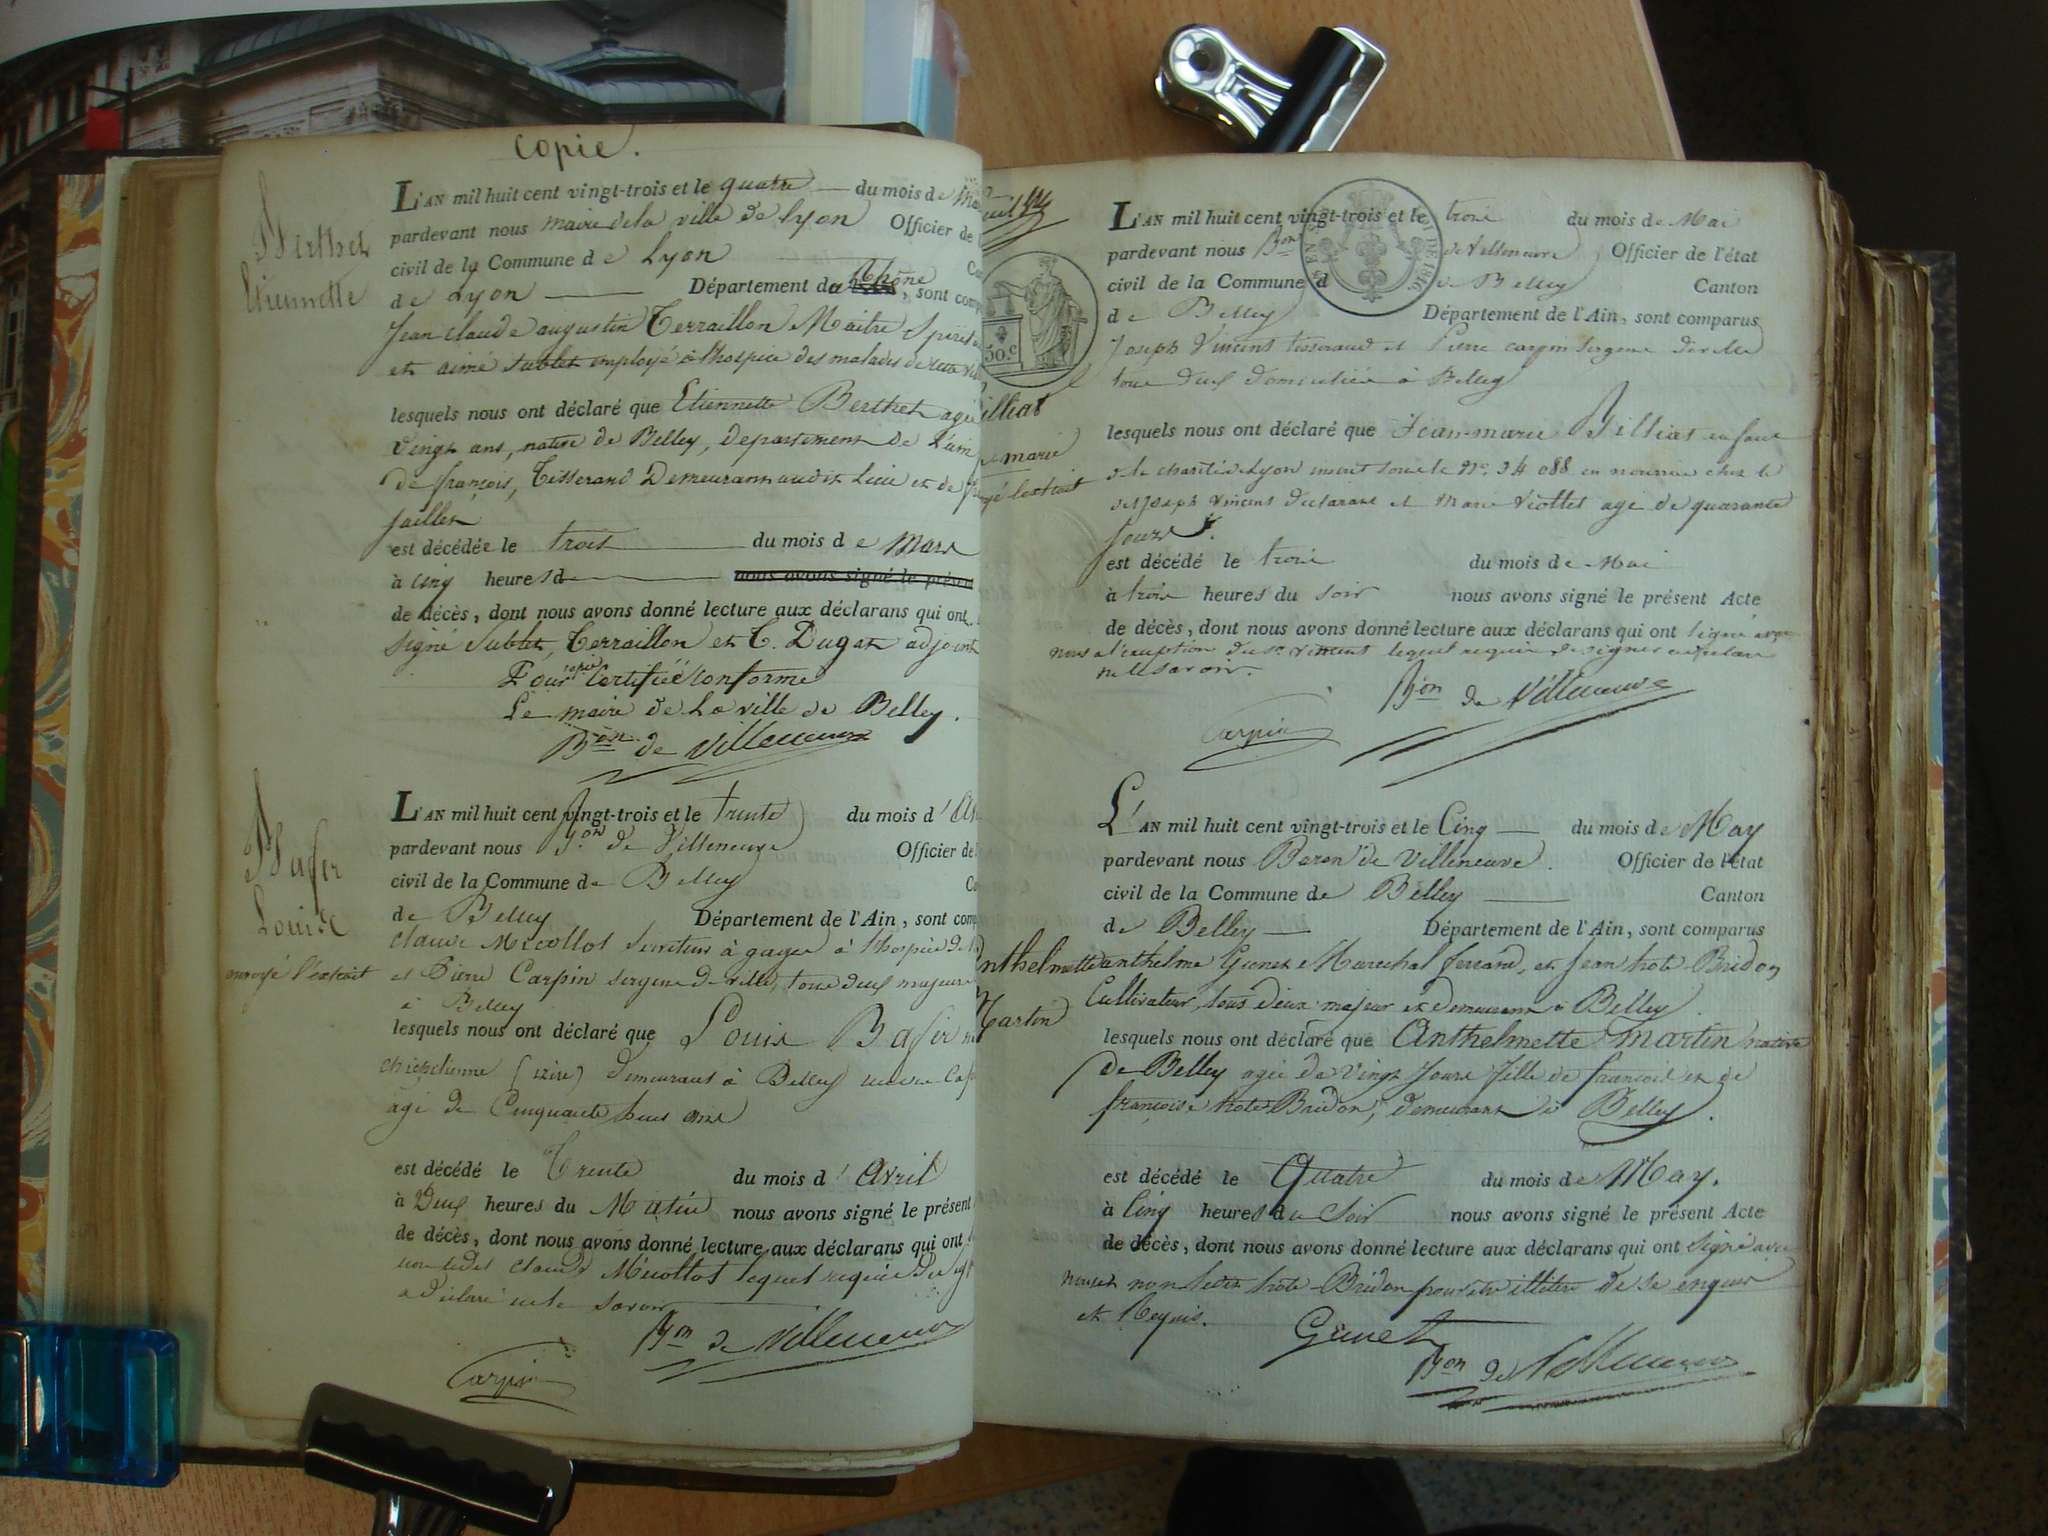 copie.
Berthet
Etiennette
L'AN mil huit cent vingt-trois et le quatre du mois de Ma
pardevant nous maire de la ville de Lyon Officier de
civil de la Commune de Lyon
de Lyon Département du Rhône, sont comp
Jean claude augustin Terraillon Maitre
et aimé Sublet employé à l'hospice des malades de cette vil
lesquels nous ont déclaré que Etiennette Berthet agée
vingt ans, native de Belley, departement de L'ain
de françois, Tisserand Demeurant audit Lieu et de
Jaillet
est décédée le trois du mois de Mars
à cinq heures d nous avons signé le présent
de décès, dont nous avons donné lecture aux déclarans qui ont
signé Sublet, Terraillon et C. Dugat adjoint
Pour copie Certifiée conforme
Le maire de La ville de Belley.
Bon de Villeneuve
Bafir
Louis
envoyé l'extrait
L'AN mil huit cent vingt-trois et le trente du mois d'Av
pardevant nous Bon de Villeneuve Officier de
civil de la Commune de Belley
de Belley Département de l'Ain, sont comp
claude Micollot Serviteur à gages à l'hospice de
et Pierre Carpin sergent de ville, tous deux majeurs
à Belley
lesquels nous ont déclaré que Louis Bafir
(izire) demeurant à Belley
agé de Cinquante deux ans
est décédé le Trente du mois d'Avril
à Deux heures du Matin nous avons signé le présent
de décès, dont nous avons donné lecture aux déclarans qui ont
non ledit claude Micollot lequel requis de
a déclaré ne le savoir
Bon de Villeneuve
Carpin
50.c
illiat
marie
l'extrait
L'AN mil huit cent vingt-trois et le trois du mois de Mai
pardevant nous Bon de Villeneuve Officier de l'état
civil de la Commune de Belley Canton
de Belley Département de l'Ain, sont comparus
Joseph Vincent tisserand et Pierre carpin sergent de ville
tous deux domiciliés à Belley
lesquels nous ont déclaré que Jean-marie Billiat enfant
de la charité de Lyon inscrit sous le No. 34 088 en nourrice chez le
dit Joseph Vincent déclarant et Marie Viollet agé de quarante
jours.
est décédé le trois du mois de Mai
à trois heures du soir nous avons signé le présent Acte
de décès, dont nous avons donné lecture aux déclarans qui ont signé avec
nous a l'exception du sr. Vincent lequel requis de signer a déclaré
ne le savoir.
Bon de Villeneuve
Carpin
Anthelmette
Martin
L'AN mil huit cent vingt-trois et le Cinq du mois de May
pardevant nous Baron de Villeneuve. Officier de l'état
civil de la Commune de Belley Canton
de Belley Département de l'Ain, sont comparus
anthelme Gunet Marechal ferrand, et Jean trote Bridon
Cultivateur, tous deux majeur et demeurant à Belley.
lesquels nous ont déclaré que Anthelmette Martin native
de Belley agée de vingt Jours fille de francois et de
françoise trote Bridon, demeurant à Belley.
est décédé le Quatre du mois de May.
à Cinq heures du Soir nous avons signé le présent Acte
de décès, dont nous avons donné lecture aux déclarans qui ont signé avec
nous et non ledit trote Bridon pour être illitere de ce enquis
et Requis.
Gunet
Bon de Villeneuve